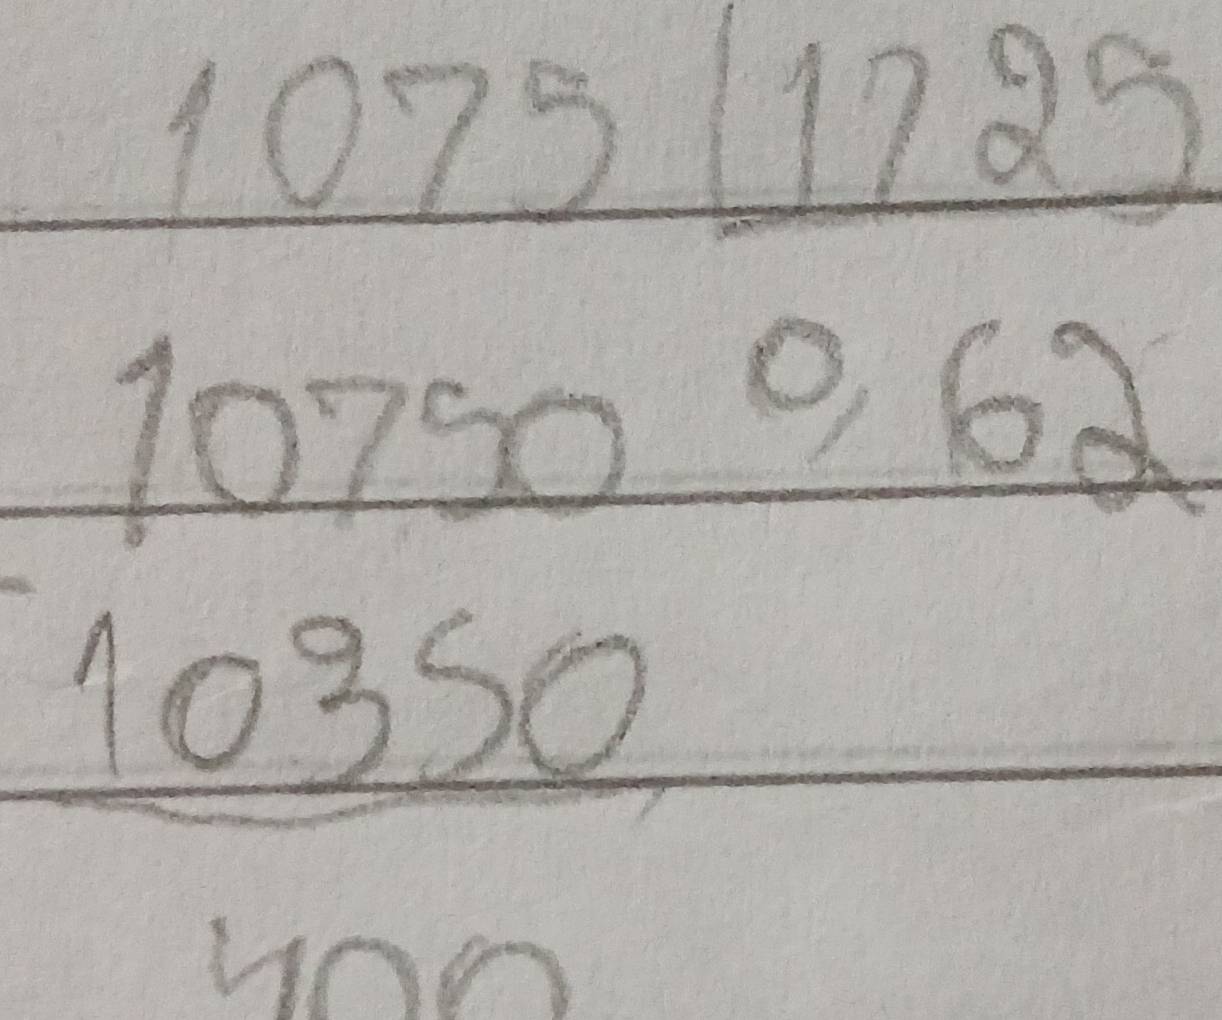 1075 | 1725
10750 0,62
- 10350
400